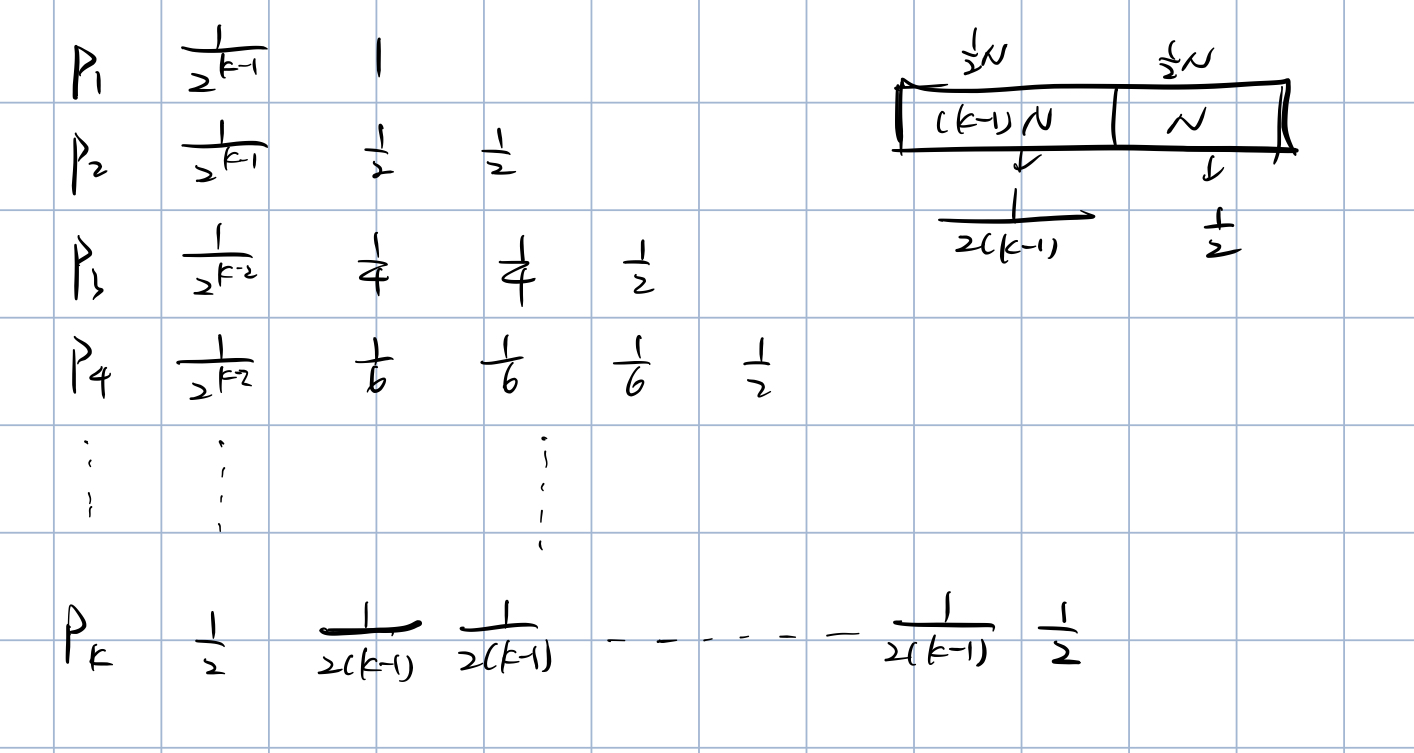 P₁ 1/2^(k-1) 1
P₂ 1/2^(k-1) 1/2 1/2
P₃ 1/2^(k-2) 1/4 1/4 1/2
P₄ 1/2^(k-2) 1/6 1/6 1/6 1/2
P_k 1/2 1/2(k-1) 1/2(k-1) - - - - - - 1/2(k-1) 1/2
1/2 N 1/2 N
(k-1)N N
↓ ↓
1/2(k-1) 1/2